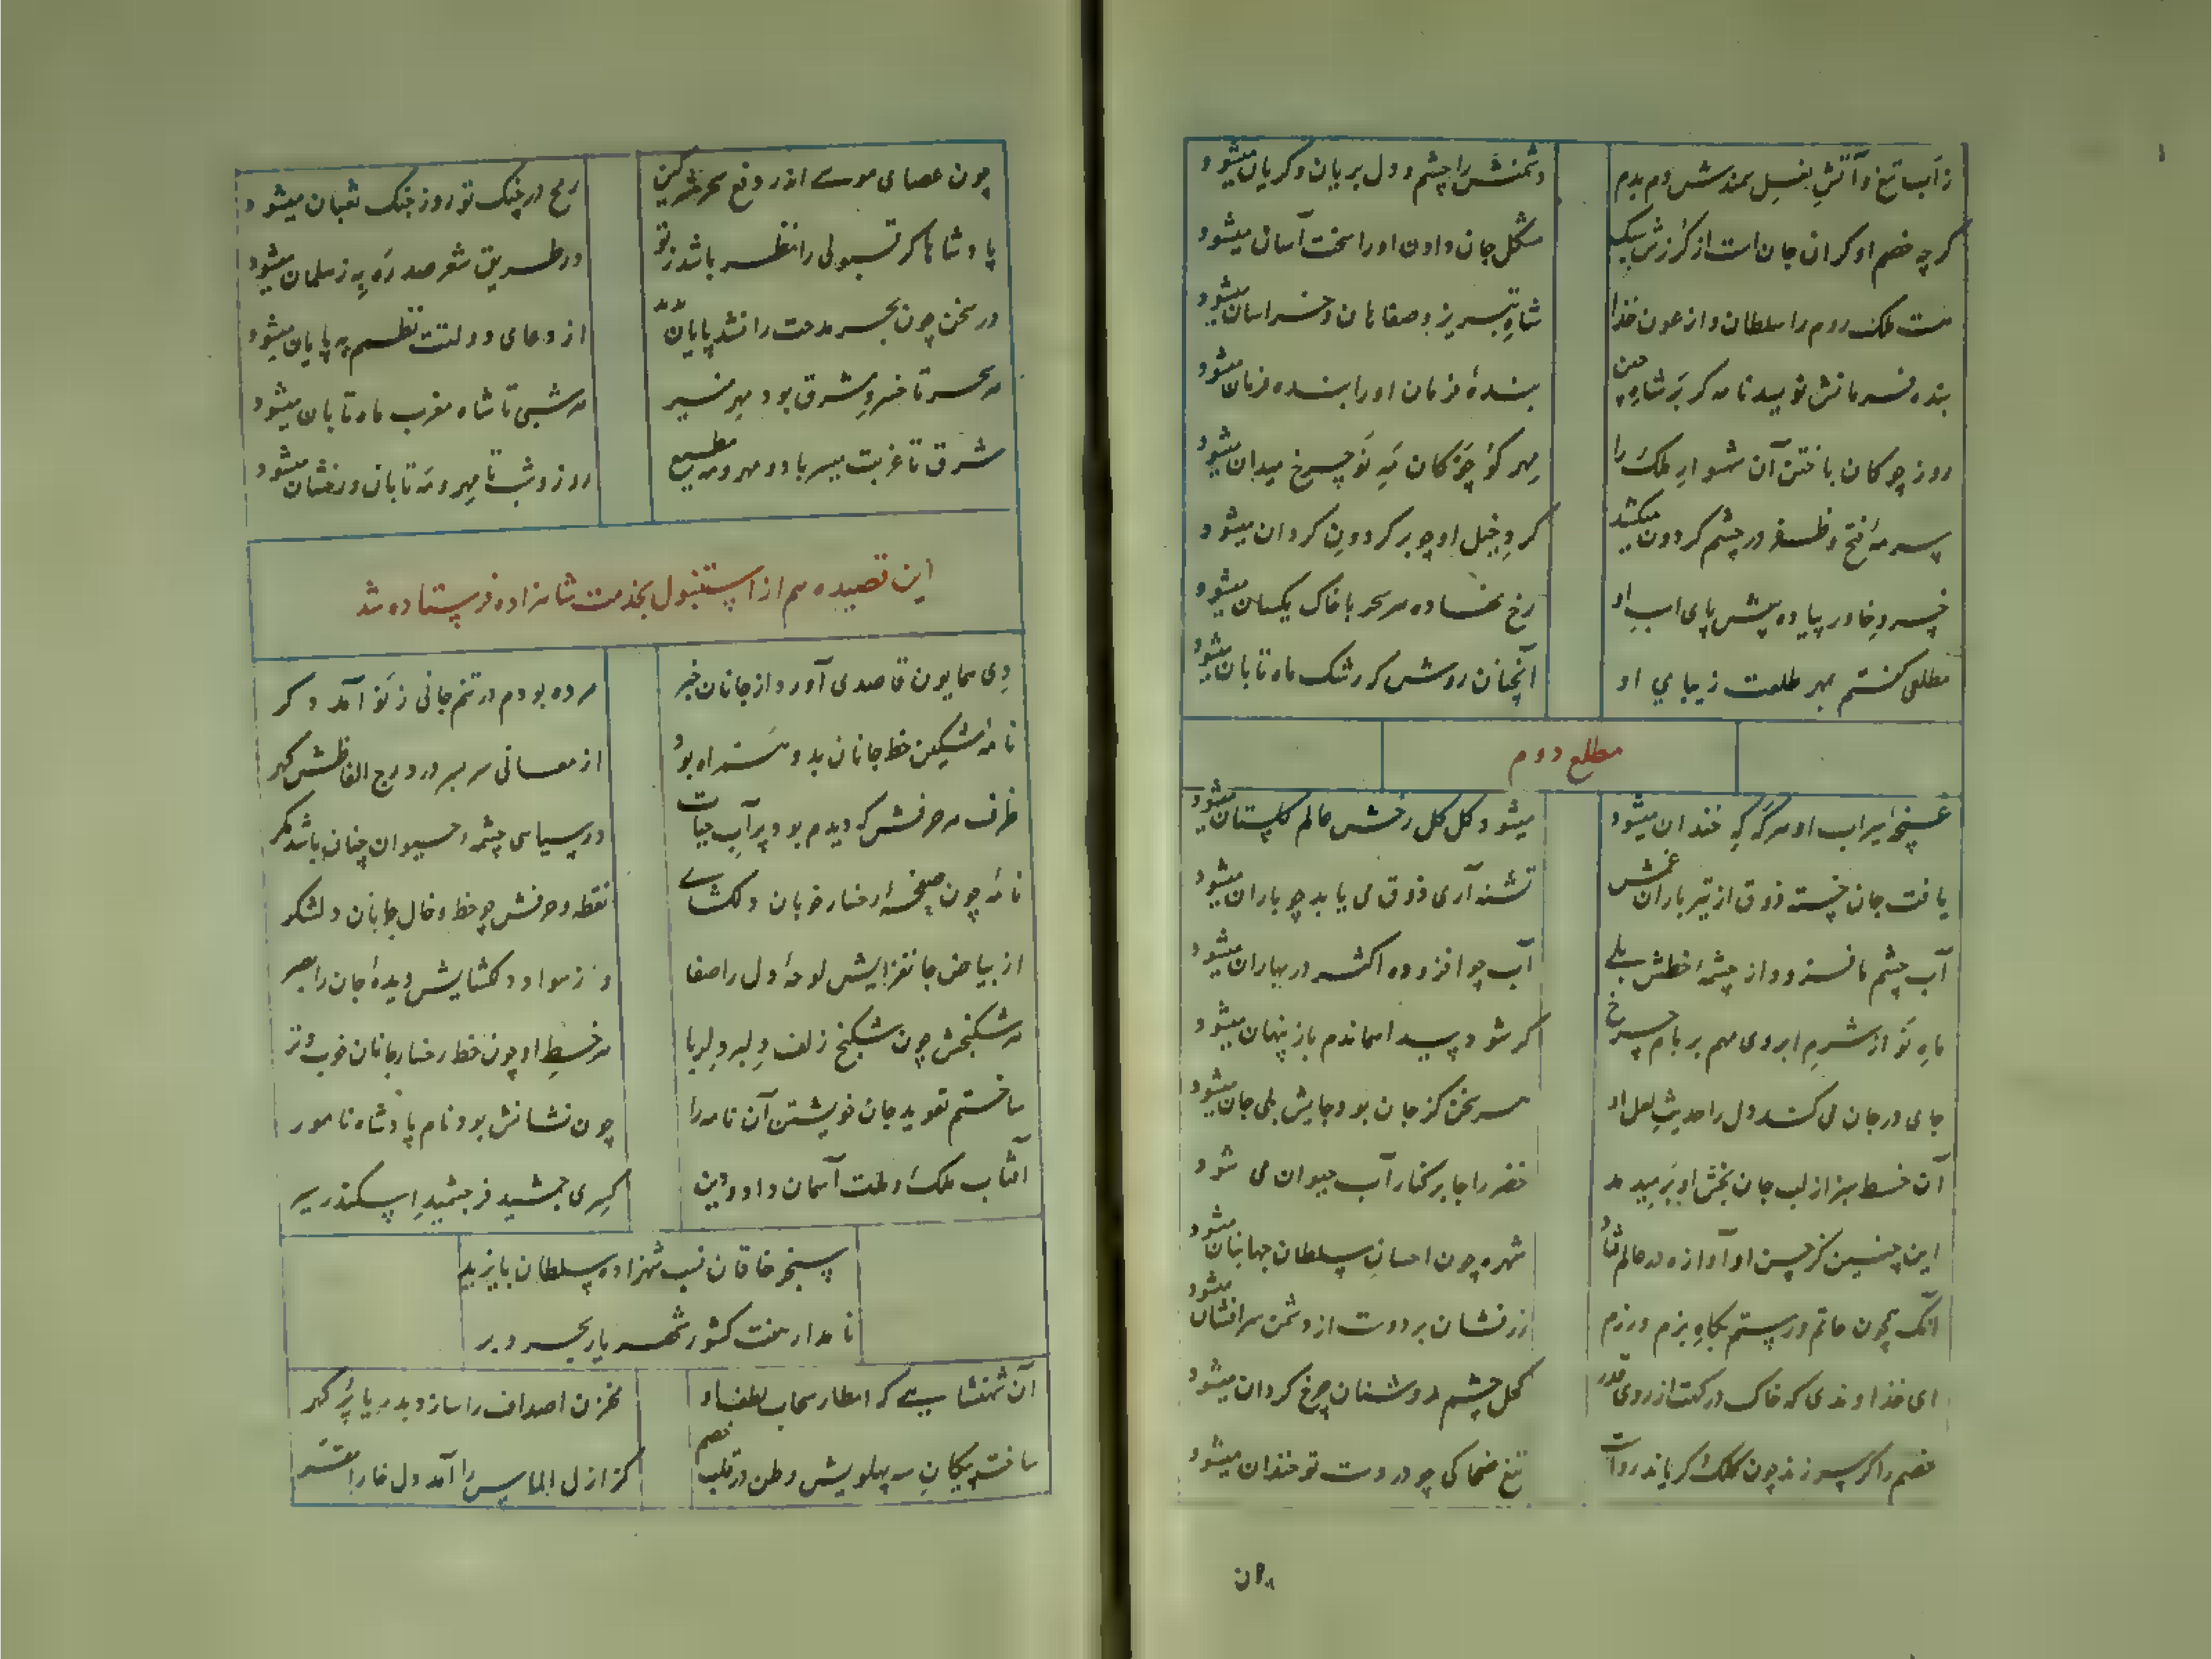 ز آب تیغ و آتش نعل سمندش دم بدم
دشمنش را چشم و دل بریان و کریان میشود
کرچه خصم او کران جان است از کرزش
مشکل جان دادن او را سخت آسان میشود
هست ملک روم را سلطان و از عون خدا
شاه تبریز و صفاهان و خراسان میشود
بنده فرمانش نویسد نامه کر بر شاه چین
بندهٔ فرمان او را بنده فرمان میشود
روز چوکان باختن آن شهسوار ملک را
مهر کوُ چوکان مَهِ نو چرخ میدان میشود
سرمهٔ فتح و ظفر در چشم کردون میکشد
کرد خیل او چو بر کردون کردان میشود
خسرو خاور پیاده پیش پای اسب او
رخ نهاده هر سحر با خاک یکسان میشود
مطلعی کفتم بمهر طلعت زیبای او
آنچنان روشن که رشک ماه تابان میشود
مطلع دوم
غنچهٔ سیراب او هر که که خندان میشود
میشود کل کل رخش عالم کلستان میشود
یافت جان خسته ذوق از تیر باران غمش
تشنه آری ذوق می یابد چو باران میشود
آب چشم ما فزود از چشمهٔ خطش بلی
آب چو افزوده اکثر در بهاران میشود
ماه نو از شرم ابروی مهم بر بام چرخ
کر شود پیدا هماندم باز پنهان میشود
جای در جان می کند دل را حدیث لعل او
هر سخن کز جان بود جایش بلی جان میشود
آن خط سبز از لب جان بخش او بر میدمد
خضر را جا بر کنار آب حیوان می شود
این چنین کز حسن او آوازه در عالم فتاد
شهره چون احسان سلطان جهانبان میشود
آنک همچون حاتم و رستم بکاه بزم و رزم
زر فشان بر دوست از دشمن سرافشان میشود
ای خداوندی که خاک درکهت از روی قدر
کحل چشم روشنان چرخ کردان میشود
خصم را کر سر زند چون کلک کریاند رواست
تیغ ضحاکی چو در دست تو خندان میشود
چون عصای موسی اندر دفع سحر
رمح در چنک تو روز جنک ثعبان میشود
پادشاها کر قبولی را نظر باشد ز تو
در طریق شعر صد ره به ز سلمان میشود
در سخن چون بحر مدحت را نشد پایان
از دعای دولتت نظمم به پایان میشود
هر سحر تا خسرو شرق بود مهر منیر
هر شبی تا شاه مغرب ماه تابان میشود
شرق تا غربت میسر باد و مهر و مه مطیع
روز و شب تا مهر و مه تابان و رخشان میشود
این قصیده هم از استنبول بخدمت شاهزاده فرستاده شد
دی همایون قاصدی آورد از جانان خبر
مرده بودم در تنم جانی ز نو آمد دکر
نامهٔ مشکین خط جانان بدو همراه بود
از معانی سر بسر در درج الفاظش کهر
ظرف هر حرفش که دیدم بود پر آب حیات
در سیاهی چشمهٔ حیوان چنان باشد مکر
نامهٔ چون صفحهٔ رخسار خوبان دلکشای
نقطه و حرفش چو خط و خال جانان دلشکر
از بیاض جانفزایش لوحهٔ دل را صفا
وز سواد دلکشایش دیدهٔ جان را بصر
هر شکنجش چون شکنج زلف دلبر دلربا
هر خط او چون خط رخسار جانان خوب و تر
ساختم تعوید جان خویشتن آن نامه را
چون نشانش بود نام پادشاه نامور
آفتاب ملک و ملت آسمان داد و دین
کسری جمشید فر جمشید اسکندر سیر
سنجر خاقان نسب شهزاده سلطان بایزید
نامدار هفت کشور شهریار بحر و بر
آن شهنشاهی که امطار سحاب لطف او
مخزن اصداف را سازد بدریا پر کهر
ساخت پیکان سه پهلویش وطن در قلب خصم
کز ازل الماس را آمد دل خارا مقر